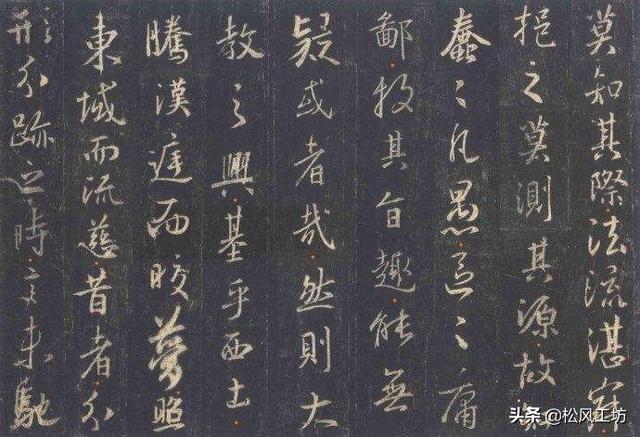 莫知其際法流湛寂
挹之莫測其源故知
蠢〻凡愚區〻庸
鄙投其旨趣能無
疑或者哉然則大
教之興基乎西土
騰漢庭而皎夢照
東域而流慈昔者分
形分跡之時言未馳
头条 @松风工坊